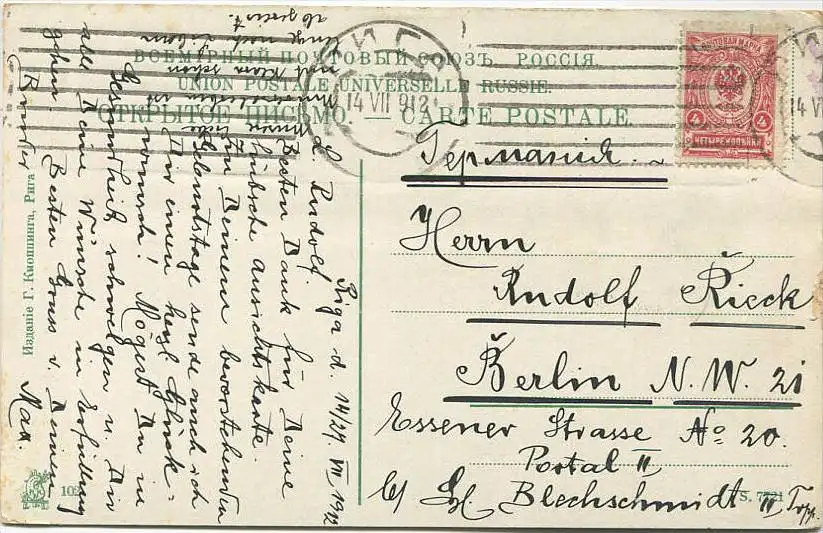 ВСЕМІРНЫЙ ПОЧТОВЫЙ СОЮЗЪ. РОССІЯ.
UNION POSTALE UNIVERSELLE RUSSIE.
ОТКРЫТОЕ ПИСЬМО. — CARTE POSTALE
14 VII 912
14 VI
ПОЧТОВАЯ МАРКА
4 4
ЧЕТЫРЕ КОП.
Германия.
Herrn
Rudolf Rieck
Berlin N.W. 21
Essener Strasse No 20.
Portal II
b/ Blechschmidt II Trpp.
Riga d. 14/27 VII 1912
L. Rudolf.
Besten Dank für Deine
hübsche Ansichtskarte.
Zu Deinem bevorstehenden
Geburtstage sende auch ich
Dir einen herzl. Glück-
wunsch! Mögest Du in
Gesundheit schwelgen u. Dir
alle Deine Wünsche in Erfüllung
gehen. Besten Gruss v. Deinem
Bruder Max.
ist
schon
abgereist.
Изданіе Г. Кноппинга, Рига
102
S. 7721